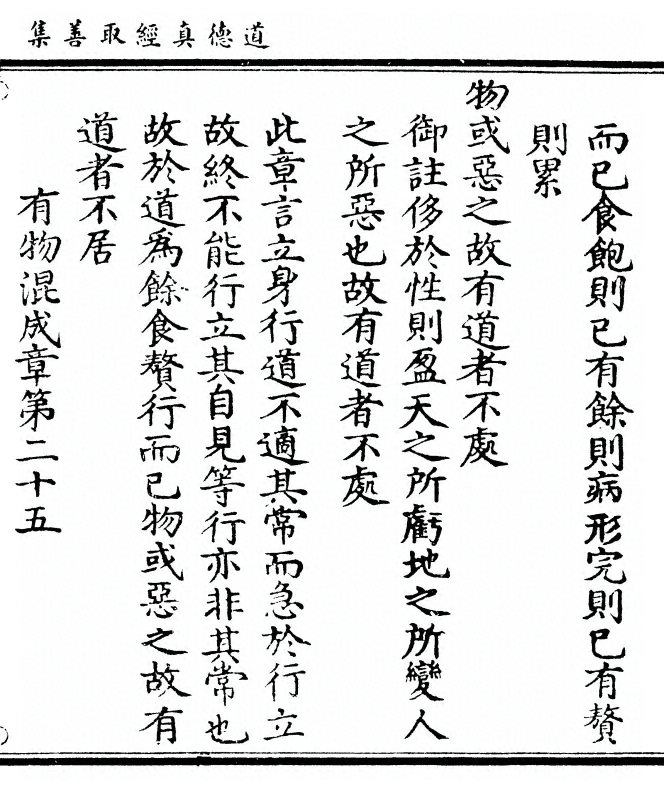 道德真經取善集
而已食飽則已有餘則病形完則已有贅
則累
物或惡之故有道者不處
御註侈於性則盈天之所虧地之所變人
之所惡也故有道者不處
此章言立身行道不適其常而急於行立
故終不能行立其自見等行亦非其常也
故於道爲餘食贅行而已物或惡之故有
道者不居
有物混成章第二十五